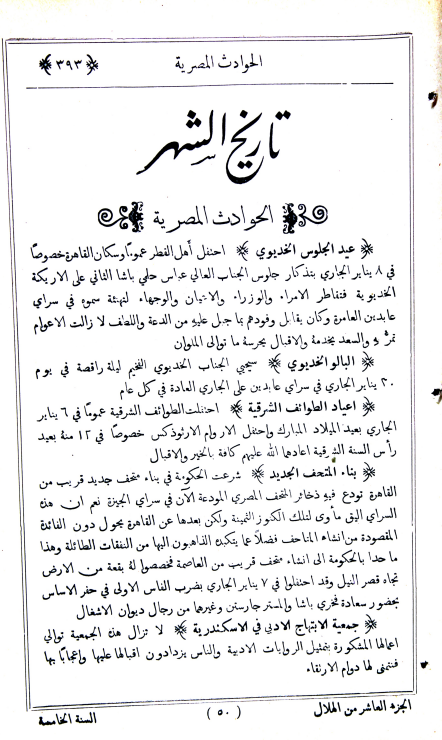 الحوادث المصرية ﴿٣٩٣﴾
تاريخ الشهر
الحوادث المصرية
﴿ عيد الجلوس الخديوي ﴾ احتفل أهل القطر عموماً وسكان القاهرة خصوصاً
في ٨ يناير الجاري بتذكار جلوس الجناب العالي عباس حلمي باشا الثاني على الاريكة
الخديوية فتقاطر الامراء والوزراء والاعيان والوجهاء لتهنئة سموه في سراي
عابدين العامرة وكان يقابل وفودهم بما جبل عليه من الدعة واللطف لا زالت الاعوام
تمرُّ به والسعد يخدمهُ والاقبال يحرسهُ ما توالى الملوان
﴿ البالو الخديوي ﴾ سيحيي الجناب الخديوي الفخيم ليلة راقصة في يوم
٢٠ يناير الجاري في سراي عابدين على الجاري العادة في كل عام
﴿ اعياد الطوائف الشرقية ﴾ احتفلت الطوائف الشرقية عموماً في ٦ يناير
الجاري بعيد الميلاد المبارك واحتفل الاروام الارثوذكس خصوصاً في ١٢ منهُ بعيد
رأس السنة الشرقية اعادها الله عليهم كافة بالخير والاقبال
﴿ بناء المتحف الجديد ﴾ شرعت الحكومة في بناء متحف جديد قريب من
القاهرة تودع فيهِ ذخائر المتحف المصري المودعة الآن في سراي الجيزة نعم ان هذه
السراي اليق مأوى لتلك الكنوز الثمينة ولكن بعدها عن القاهرة يحول دون الفائدة
المقصودة من انشاء المتاحف فضلاً عما يتكبدهُ الذاهبون اليها من النفقات الطائلة وهذا
ما حدا بالحكومة الى انشاء متحف قريب من العاصمة فخصصوا لهُ بقعة من الارض
تجاه قصر النيل وقد احتفلوا في ٧ يناير الجاري بضرب الفاس الاولى في حفر الاساس
بحضور سعادة فخري باشا والمستر جارستن وغيرهما من رجال ديوان الاشغال
﴿ جمعية الابتهاج الادبي في الاسكندرية ﴾ لا تزال هذه الجمعية توالي
اعمالها المشكورة بتمثيل الروايات الادبية والناس يزدادون اقبالاً عليها واعجاباً بها
فنتمنى لها دوام الارتقاء
الجزء العاشر من الهلال (٥٠) السنة الخامسة